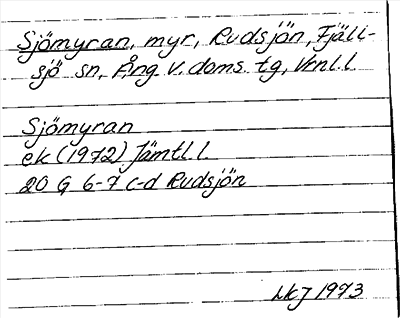 Sjömyran, myr, Rudsjön, Fjäll-
sjö sn, Ång. v. doms. tg, Vrnl. l.
Sjömyran
ek (1972) Jämtl. l.
20 G 6-7 c-d Rudsjön
LKJ 1973